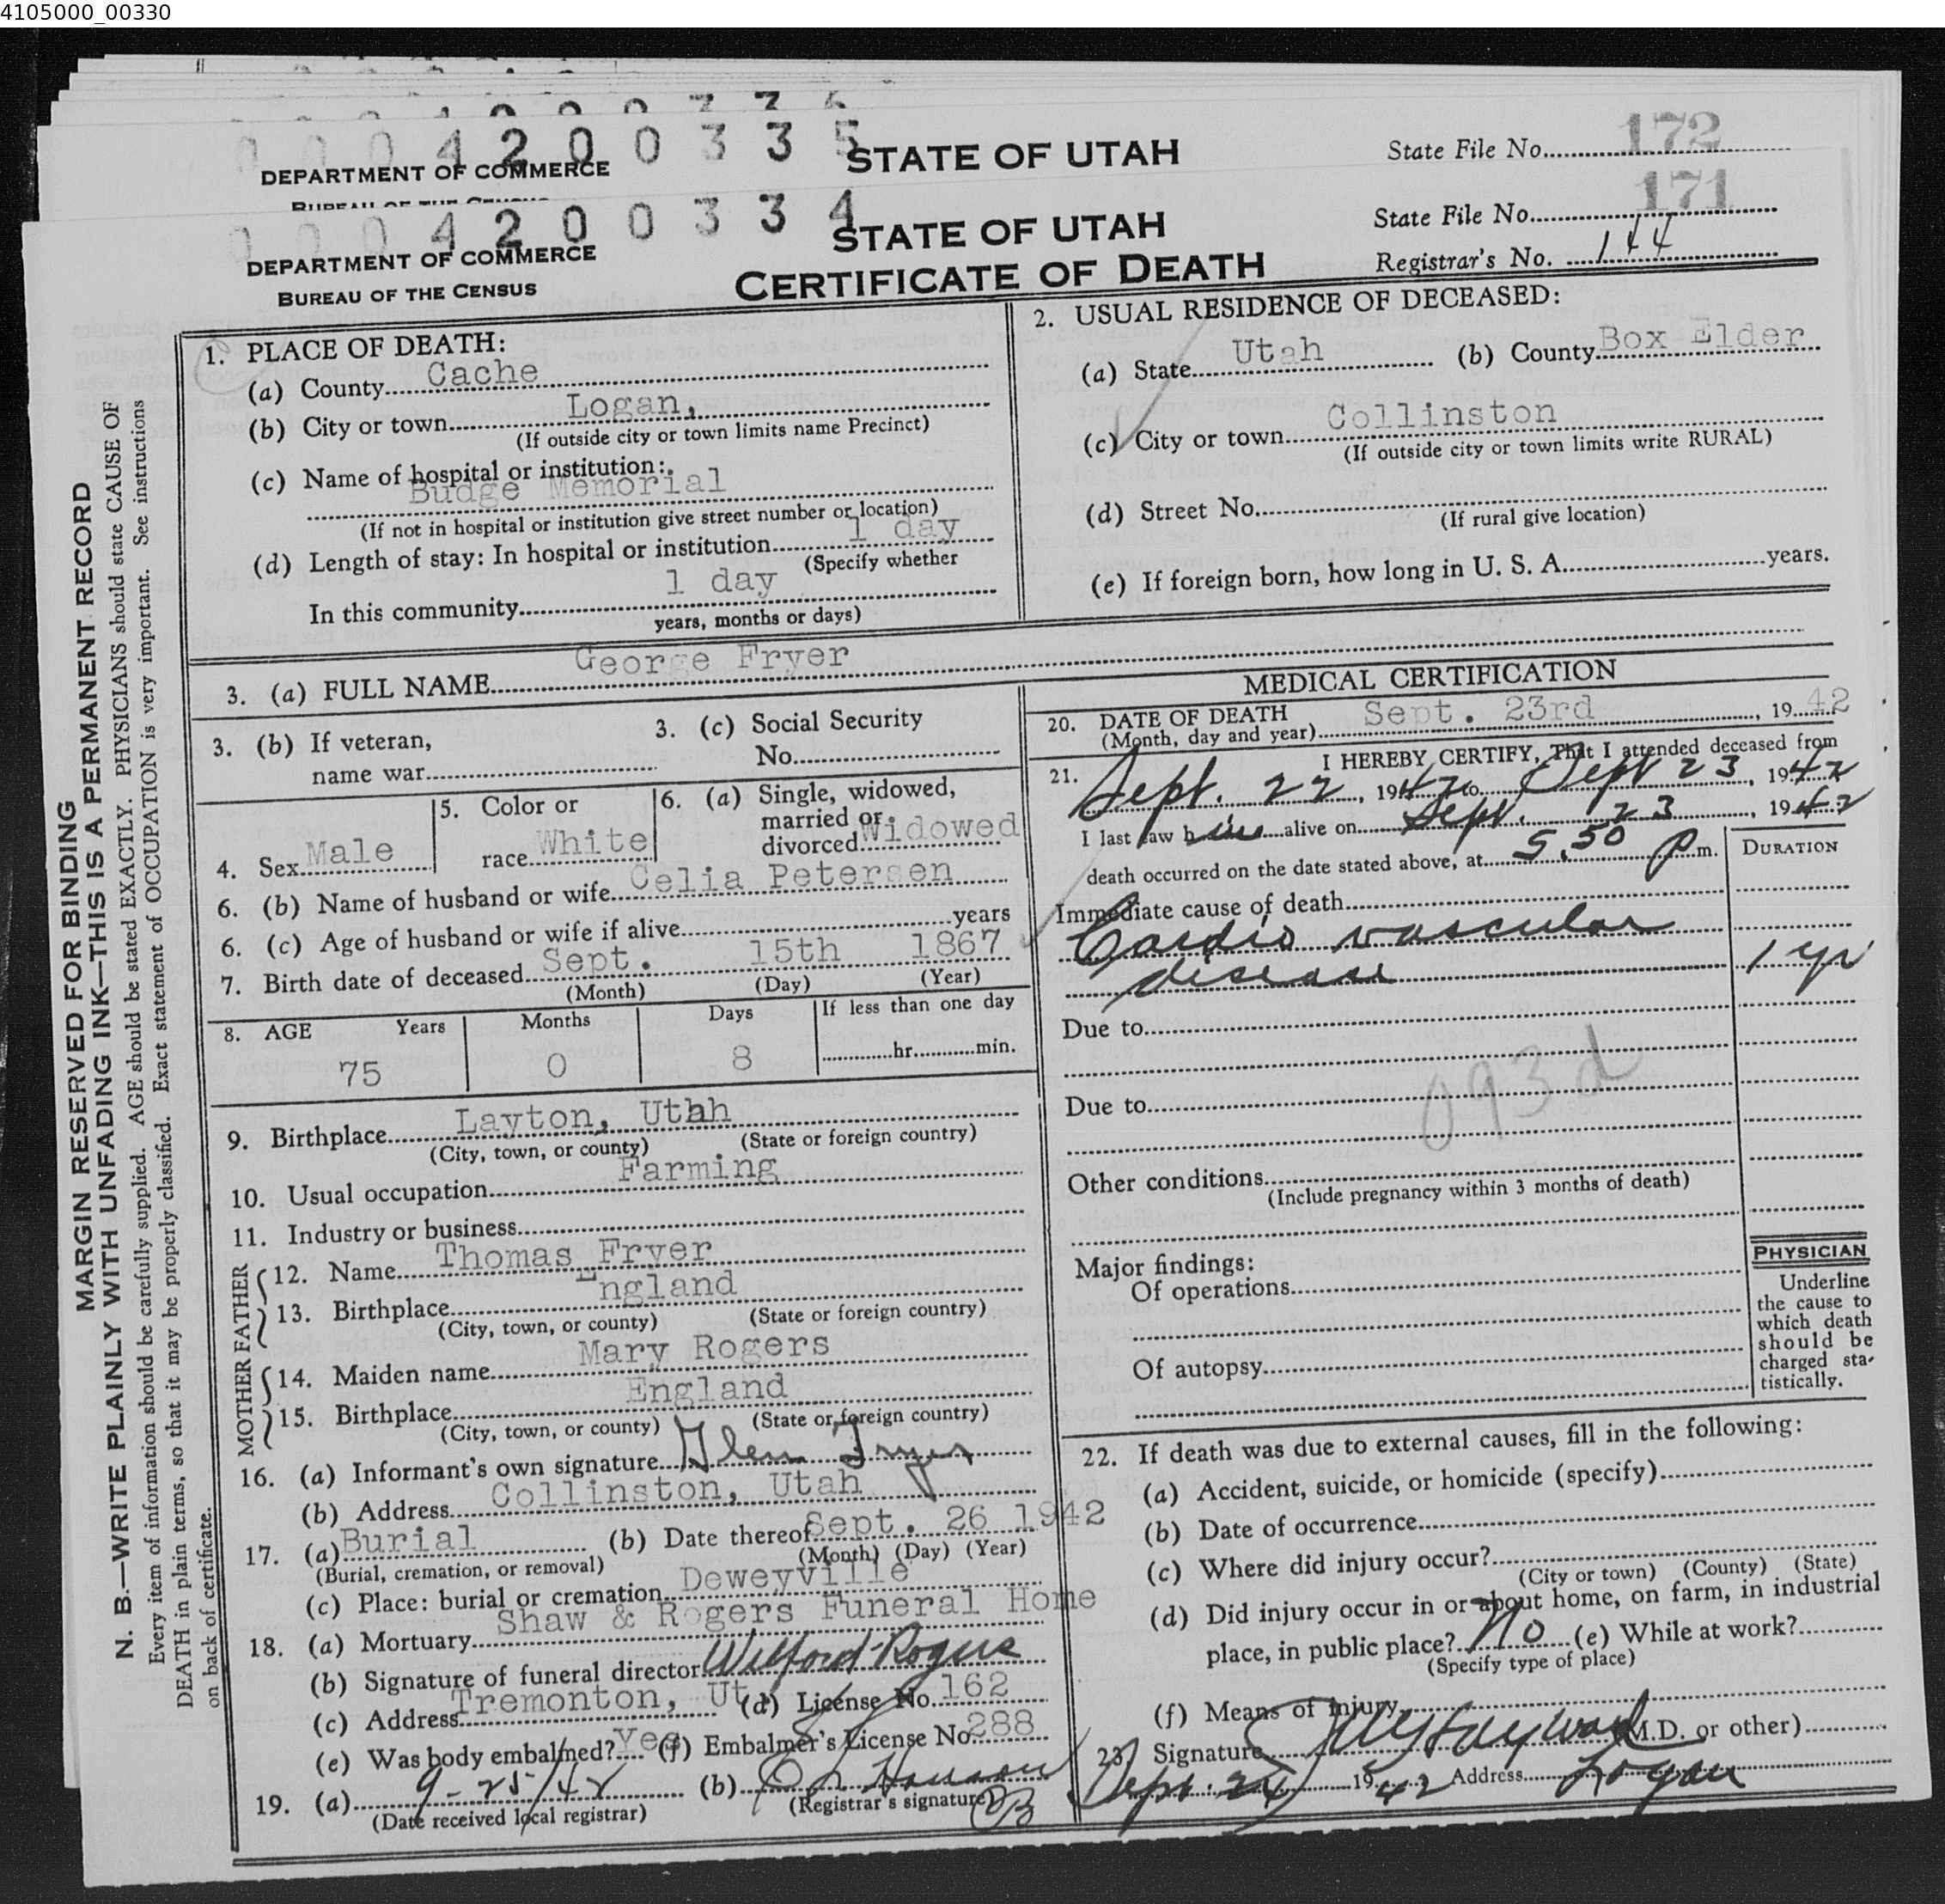 4105000_00330
0 0 0 4 2 0 0 3 3 5
DEPARTMENT OF COMMERCE
STATE OF UTAH
State File No. 172
BUREAU OF THE CENSUS
0 0 0 4 2 0 0 3 3 4
DEPARTMENT OF COMMERCE
BUREAU OF THE CENSUS
STATE OF UTAH
CERTIFICATE OF DEATH
State File No. 171
Registrar's No. 144
MARGIN RESERVED FOR BINDING
N. B.—WRITE PLAINLY WITH UNFADING INK—THIS IS A PERMANENT RECORD
Every item of information should be carefully supplied. AGE should be stated EXACTLY. PHYSICIANS should state CAUSE OF
DEATH in plain terms, so that it may be properly classified. Exact statement of OCCUPATION is very important. See instructions
on back of certificate.
1. PLACE OF DEATH:
(a) County Cache
(b) City or town Logan,
(If outside city or town limits name Precinct)
(c) Name of hospital or institution:
Budge Memorial
(If not in hospital or institution give street number or location)
(d) Length of stay: In hospital or institution 1 day
(Specify whether
In this community 1 day
years, months or days)
2. USUAL RESIDENCE OF DECEASED:
(a) State Utah (b) County Box Elder
(c) City or town Collinston
(If outside city or town limits write RURAL)
(d) Street No.
(If rural give location)
(e) If foreign born, how long in U. S. A. years.
3. (a) FULL NAME George Fryer
3. (b) If veteran,
name war
3. (c) Social Security
No.
4. Sex Male
5. Color or
race White
6. (a) Single, widowed,
married or
divorced Widowed
6. (b) Name of husband or wife Celia Petersen
6. (c) Age of husband or wife if alive years
7. Birth date of deceased Sept. 15th 1867
(Month) (Day) (Year)
8. AGE Years Months Days If less than one day
75 0 8 hr. min.
9. Birthplace Layton, Utah
(City, town, or county) (State or foreign country)
10. Usual occupation Farming
11. Industry or business
FATHER
12. Name Thomas Fryer
13. Birthplace England
(City, town, or county) (State or foreign country)
MOTHER
14. Maiden name Mary Rogers
15. Birthplace England
(City, town, or county) (State or foreign country)
16. (a) Informant's own signature Glen Fryer
(b) Address Collinston, Utah
17. (a) Burial (b) Date thereof Sept. 26 1942
(Burial, cremation, or removal) (Month) (Day) (Year)
(c) Place: burial or cremation Deweyville
18. (a) Mortuary Shaw & Rogers Funeral Home
(b) Signature of funeral director Wilford Rogers
(c) Address Tremonton, Ut. (d) License No. 162
(e) Was body embalmed? Yes (f) Embalmer's License No. 288
19. (a) 9-25/42 (b) Hanson
(Date received local registrar) (Registrar's signature)
MEDICAL CERTIFICATION
20. DATE OF DEATH
(Month, day and year) Sept. 23rd, 1942
21. I HEREBY CERTIFY, That I attended deceased from
Sept. 22, 1942 to Sept 23, 1942
I last saw him alive on Sept. 23, 1942
death occurred on the date stated above, at 5.50 P.m.
DURATION
Immediate cause of death
Cardio vascular
disease 1 yr
Due to
093d
Due to
Other conditions
(Include pregnancy within 3 months of death)
Major findings:
Of operations
Of autopsy
PHYSICIAN
Underline
the cause to
which death
should be
charged sta-
tistically.
22. If death was due to external causes, fill in the following:
(a) Accident, suicide, or homicide (specify)
(b) Date of occurrence
(c) Where did injury occur?
(City or town) (County) (State)
(d) Did injury occur in or about home, on farm, in industrial
place, in public place? No (e) While at work?
(Specify type of place)
(f) Means of injury
23. Signature Hayward (M.D. or other)
Sept. 24 1942 Address Logan